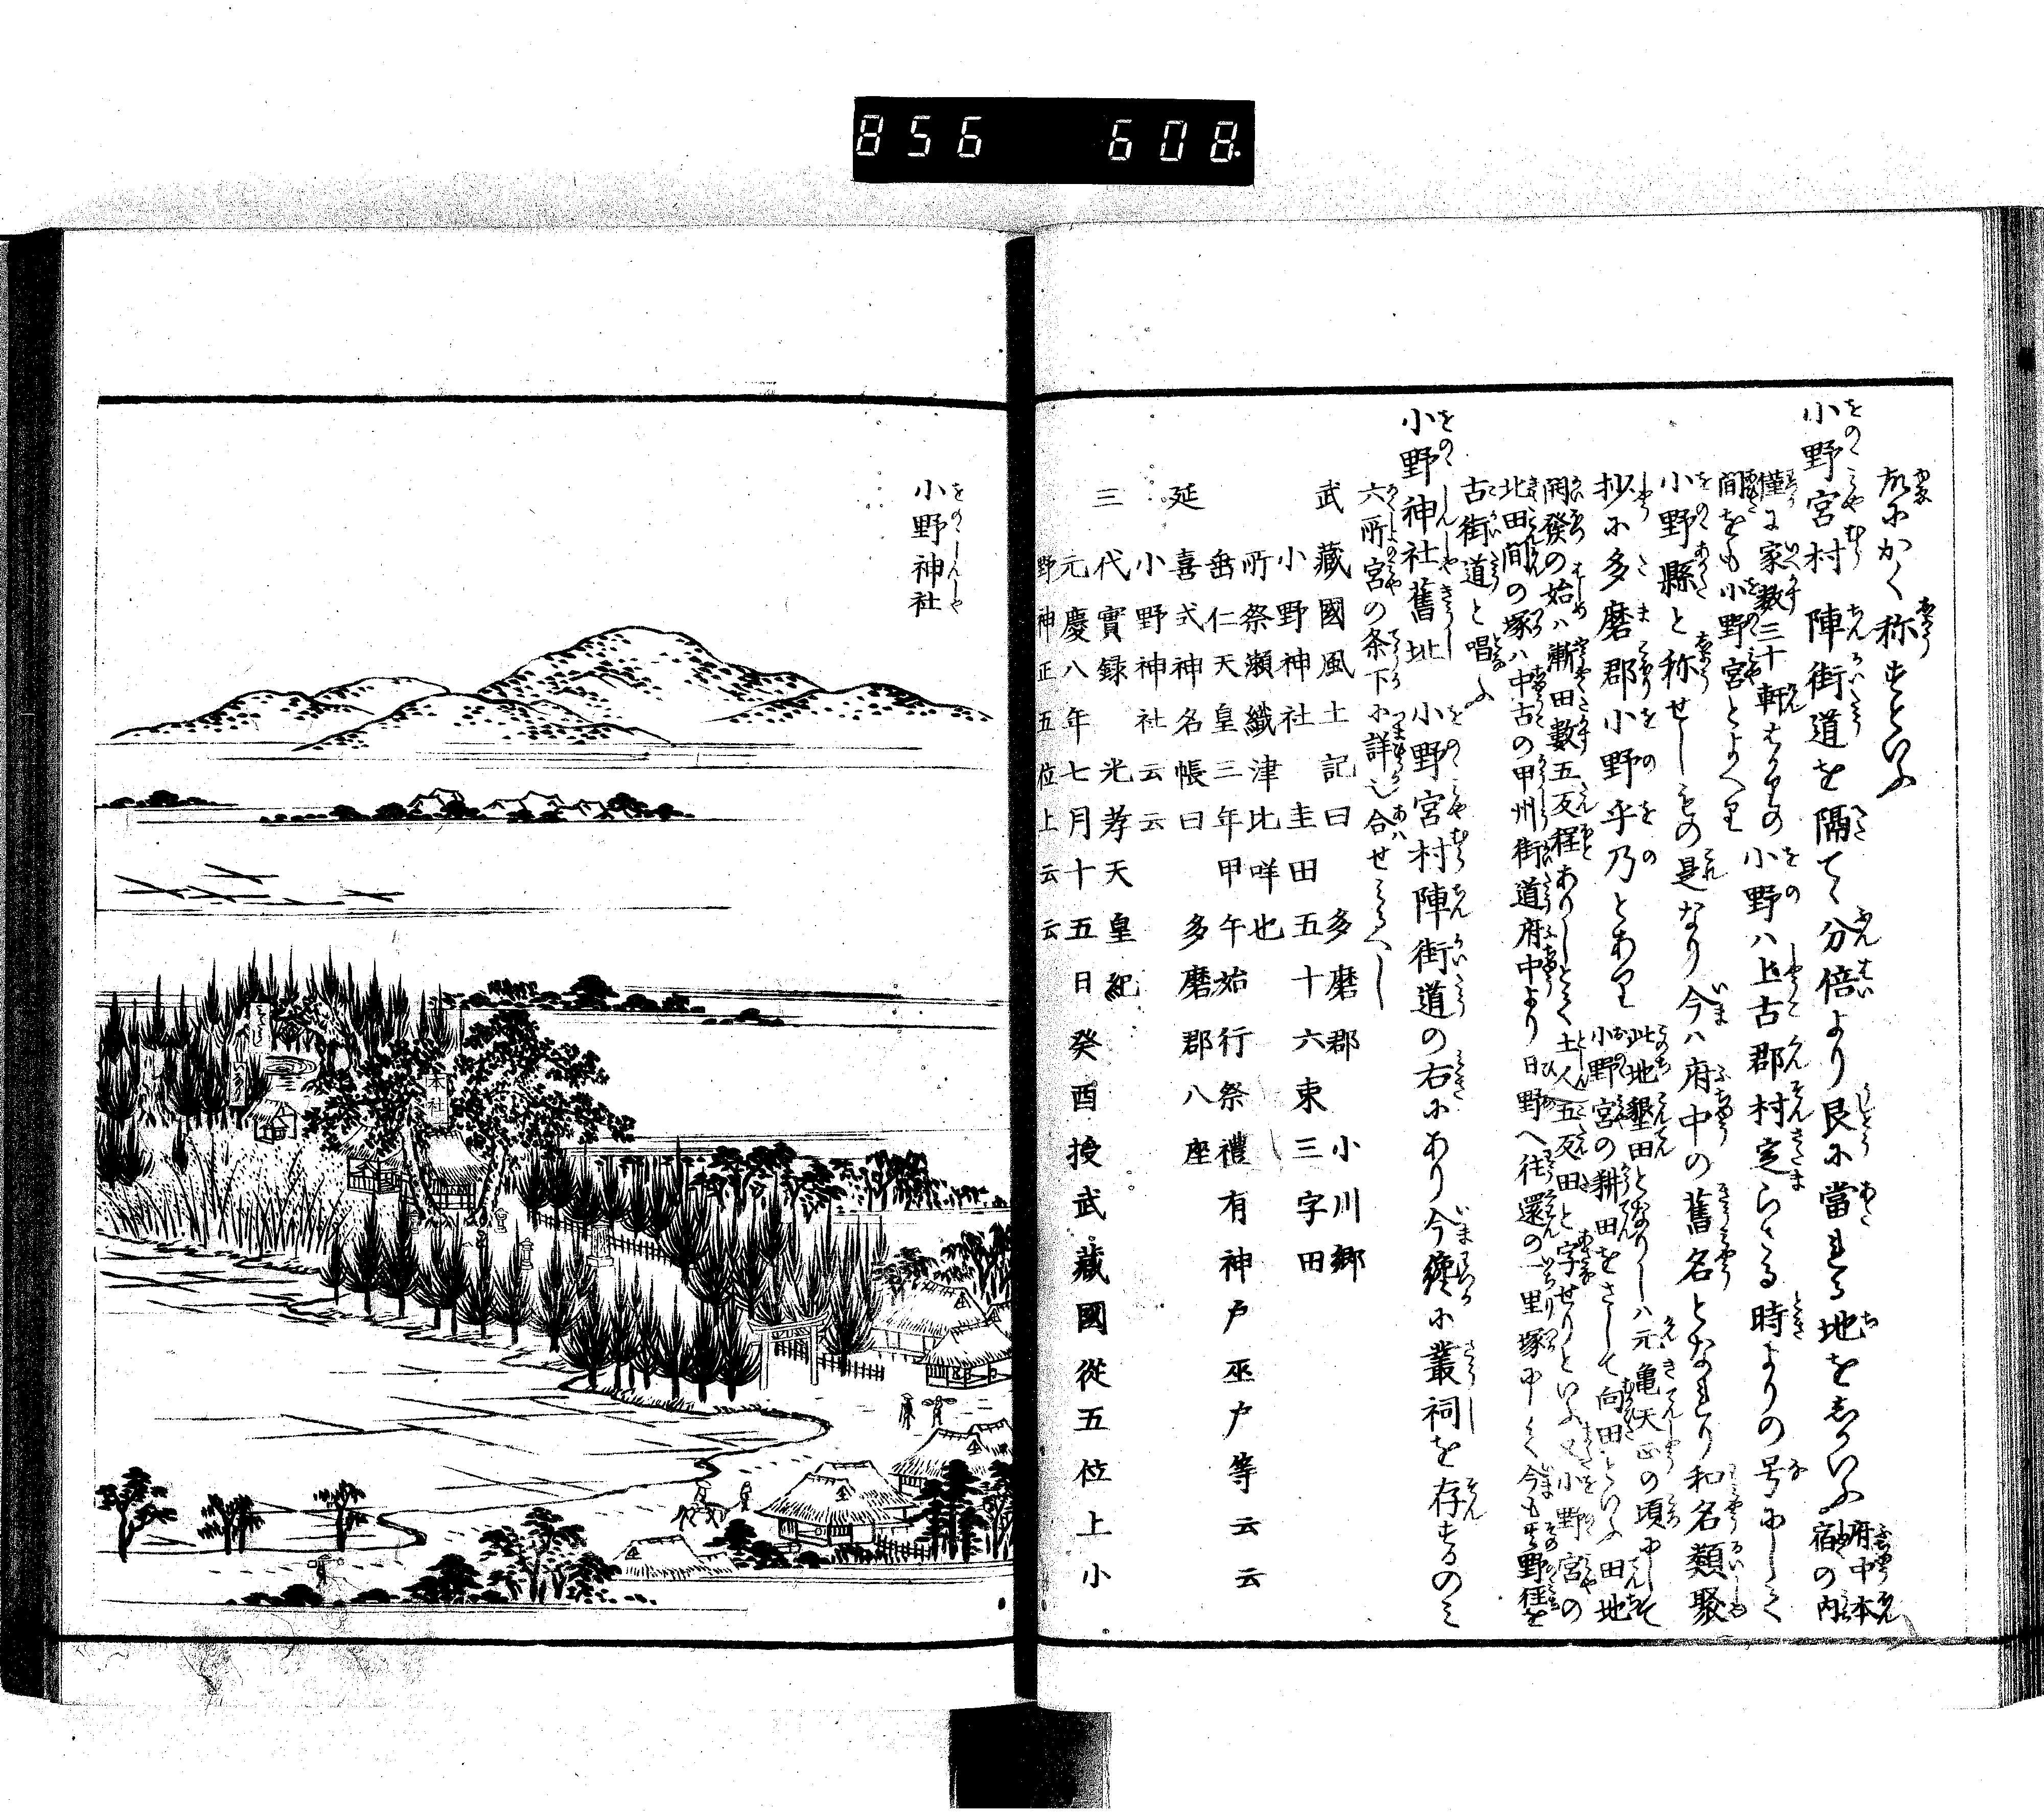 856 608
故にかく称すといふ
小野宮村 陣街道を隔てゝ分倍より艮に當れる地をしかいふ 府中本宿の内
僅に家数三十軒
間をも小野宮とよへり
小野ハ上古郡村定らさる時よりの号にして
小野縣と称せしもの是なり今ハ府中の舊名となれり和名類聚
抄に多磨郡小野乎乃とあり
此地墾田となりしハ元亀天正の頃にして
小野宮の耕田をさして向田といふ田地
開發の始ハ漸田數五反程ありしとて土人五反田と字せりといふ又小野宮の
北田間の塚ハ中古の甲州街道府中より日野へ往還の一里塚にて今も其野径を
古街道と唱ふ
小野神社舊址 小野宮村陣街道の右にあり今纔に叢祠を存するのミ
六所宮の条下に詳也合せみるへし
武藏國風土記曰 多磨郡 小川郷
小野神社 圭田五十六束三字田
所祭瀬織津比咩也
垂仁天皇三年甲午始行祭禮有神戸巫戸等云云
延喜式神名帳曰 多磨郡八座
小野神社云云
三代實録 光孝天皇紀
元慶八年七月十五日癸酉授武藏國從五位上小
野神正五位上云云
小野神社
をのゝしんしや
本社